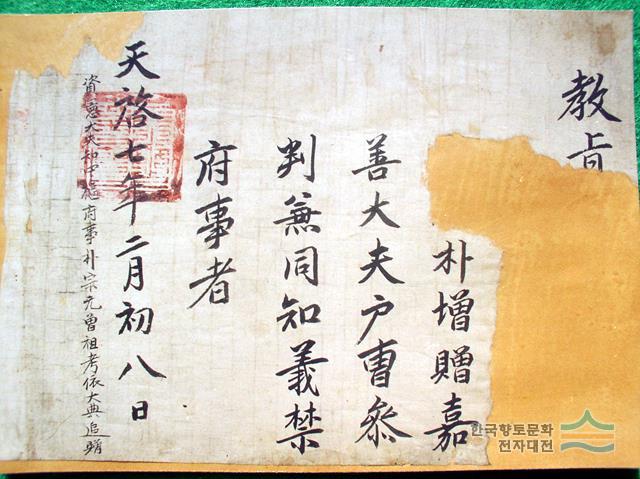 教旨
朴增贈嘉
善大夫戶曹叅
判兼同知義禁
府事者
天啓七年二月初八日
資憲大夫知中樞府事朴宗元曾祖考依大典追贈
한국향토문화
전자대전